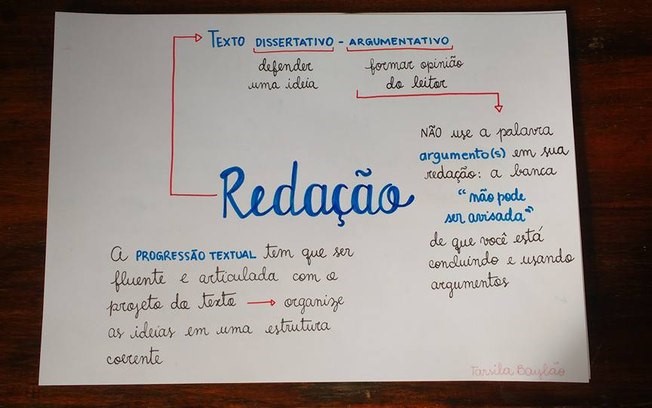 TEXTO DISSERTATIVO - ARGUMENTATIVO
defender
uma ideia
formar opinião
do leitor
NÃO use a palavra
argumento(s) em sua
redação: a banca
"não pode
ser avisada"
de que você está
concluindo e usando
argumentos
Redação
A PROGRESSÃO TEXTUAL tem que ser
fluente e articulada com o
projeto do texto → organize
as ideias em uma estrutura
coerente
Tarsila Baylão